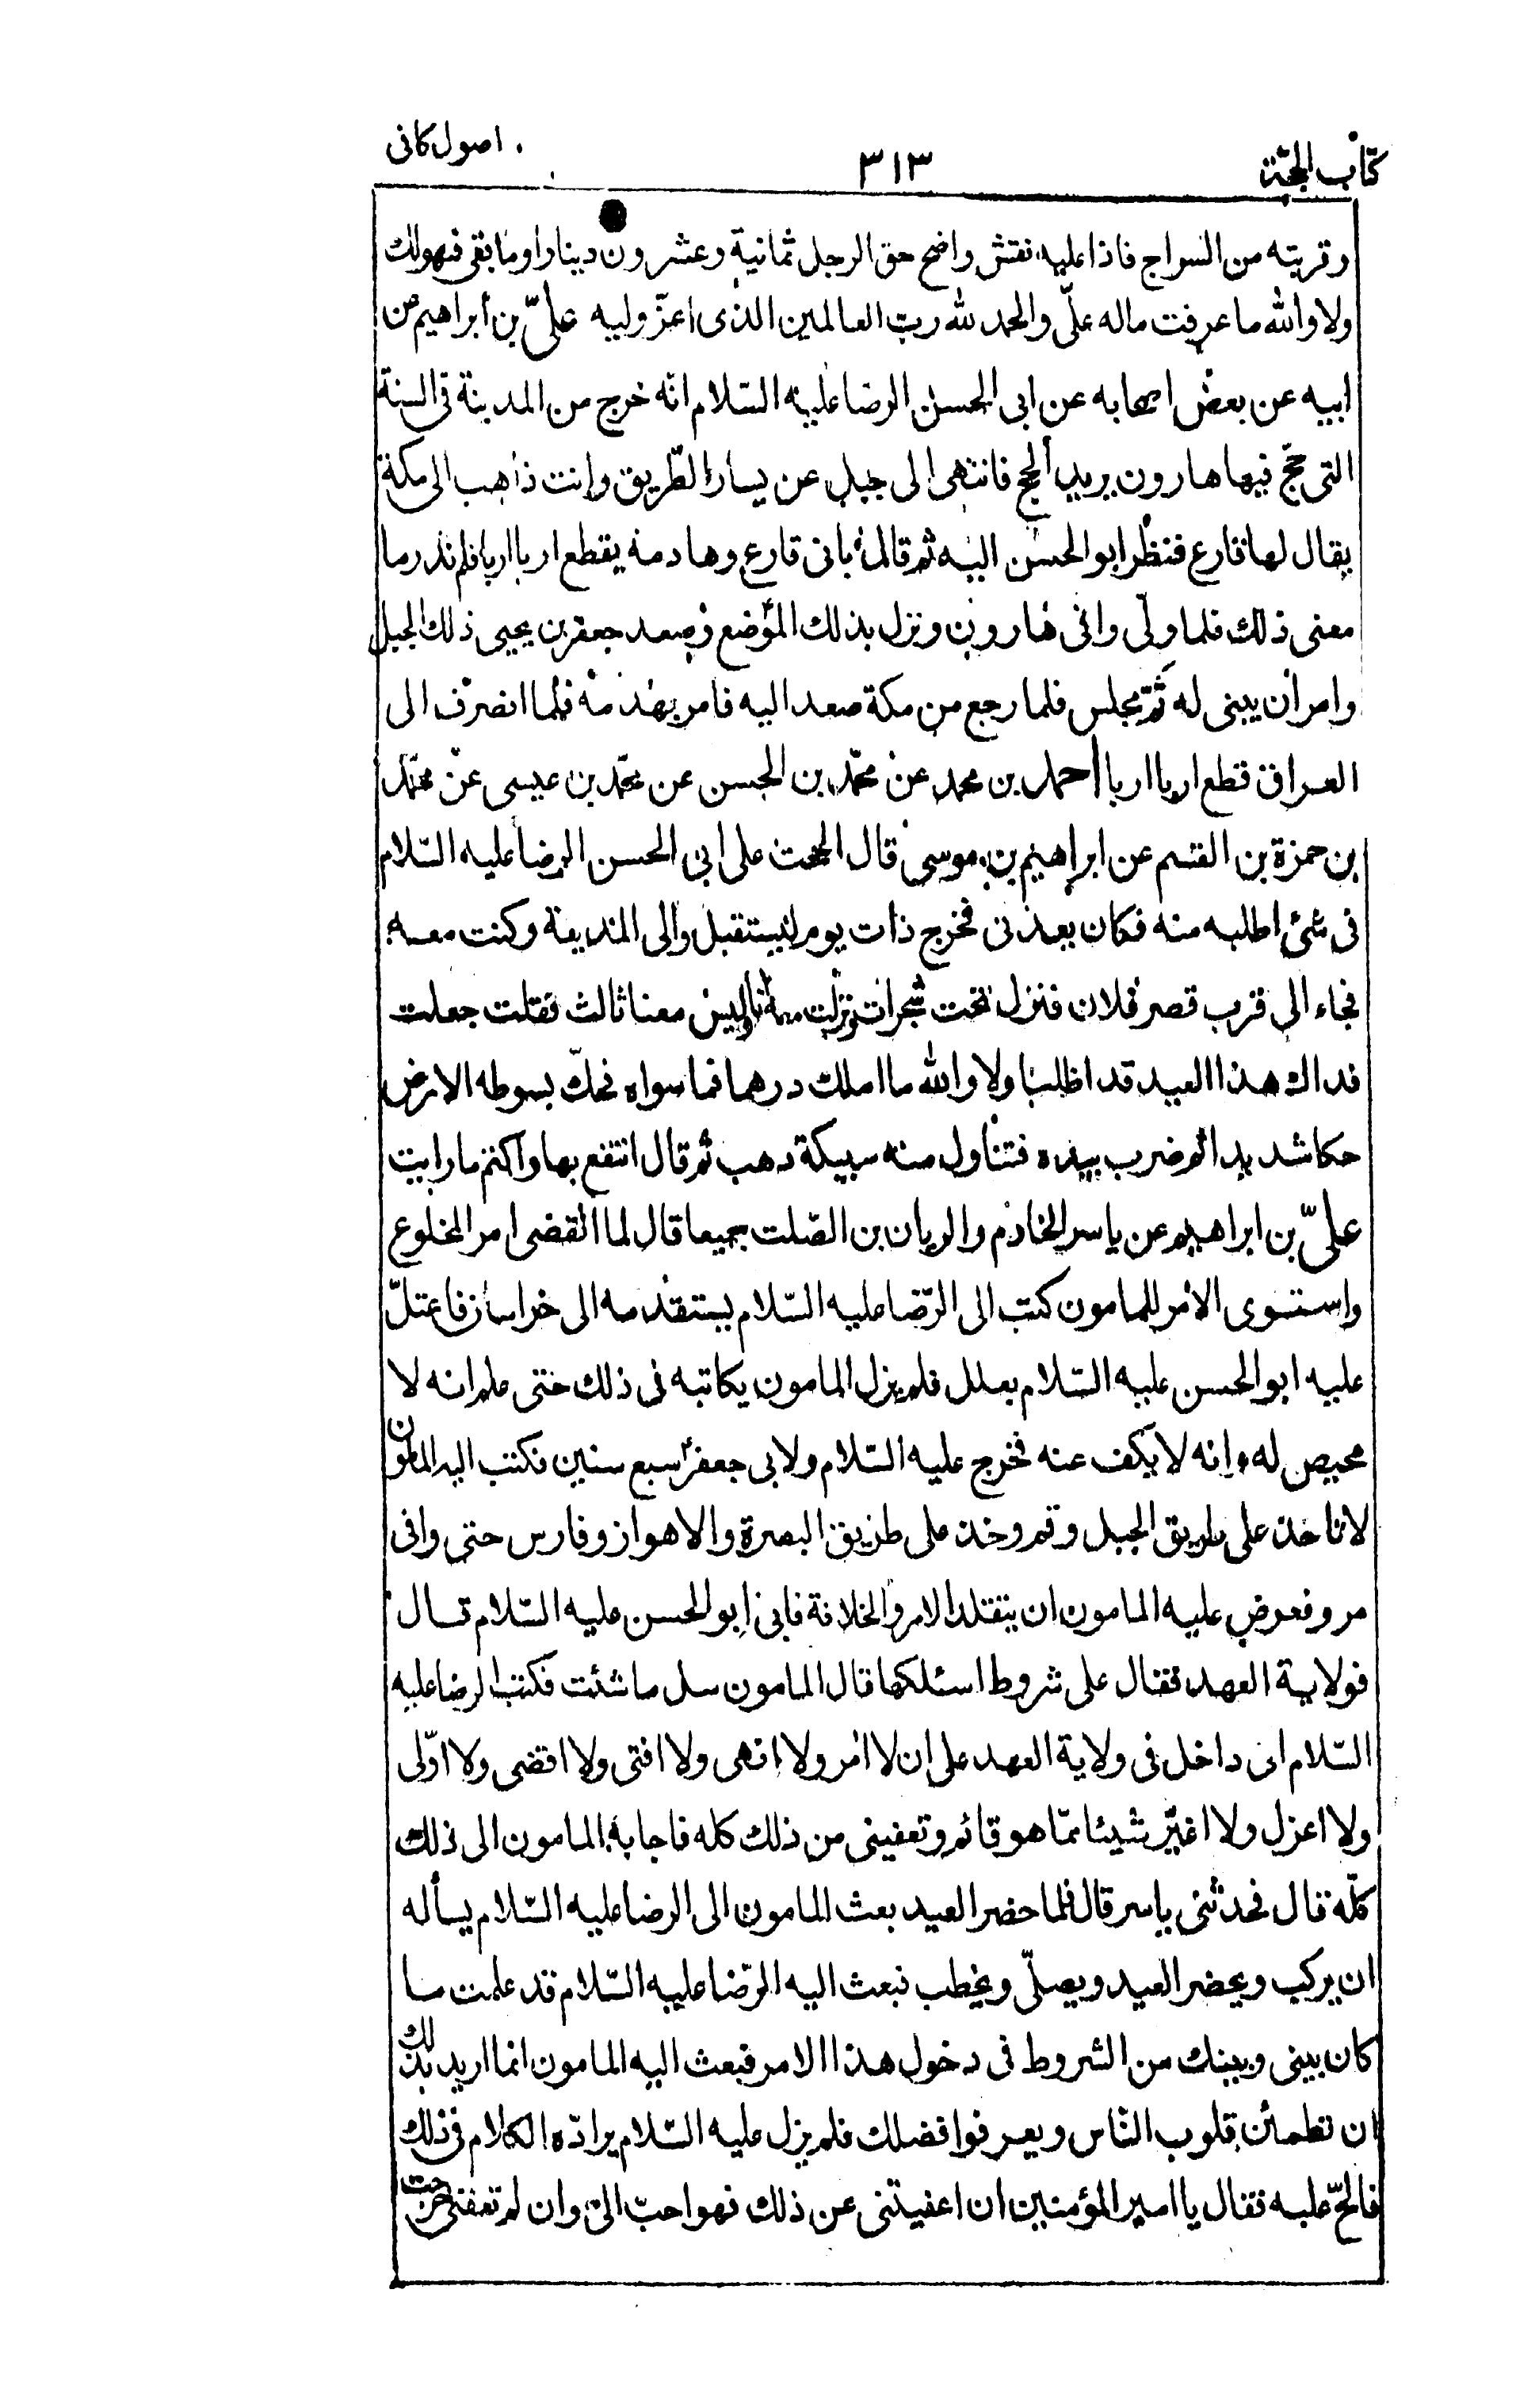 كتاب الحجّة
٣١٣
اصول كافى
وقربته من السراج فاذا عليه نقش واضح حق الرجل ثمانية وعشرون دينارا وما بقى فهو لك
ولا والله ما عرفت ماله علىّ والحمد لله ربّ العالمين الذى اعزّ وليه علىّ بن ابراهيم عن
ابيه عن بعض اصحابه عن ابى الحسن الرضا عليه السّلام انّه خرج من المدينة فى السنة
التى حجّ فيها هارون يريد الحج فانتهى الى جبل عن يسار الطّريق وانت ذاهب الى مكة
يقال لها فارع فنظر ابو الحسن اليه ثم قال بانى فارع وهادمه يقطع اربا اربا فلم ندر ما
معنى ذلك فلما ولّى وافى هارون ونزل بذلك الموضع وصعد جعفر بن يحيى ذلك الجبل
وامر أن يبنى له ثَمّ مجلس فلما رجع من مكة صعد اليه فامر بهدمه فلما انصرف الى
العراق قطع اربا اربا احمد بن محمد عن محمّد بن الحسن عن محمّد بن عيسى عن محمّد
بن حمزة بن القسم عن ابراهيم بن موسى قال الححت على ابى الحسن الرضا عليه السّلام
فى شئ اطلبه منه فكان يعدنى فخرج ذات يوم ليستقبل والى المدينة وكنت معه
فجاء الى قرب قصر فلان فنزل تحت شجرات ونزلت معه أنا وليس معنا ثالث فقلت جعلت
فداك هذا العيد قد اظلنا ولا والله ما املك درهما فما سواه فحكّ بسوطه الارض
حكا شديدا ثم ضرب بيده فتناول منه سبيكة ذهب ثم قال انتفع بها واكتم ما رايت
علىّ بن ابراهيم عن ياسر الخادم والريان بن الصّلت جميعا قال لما انقضى امر المخلوع
واستوى الامر للمامون كتب الى الرّضا عليه السّلام يستقدمه الى خراسان فاعتلّ
عليه ابو الحسن عليه السّلام بعلل فلم يزل المامون يكاتبه فى ذلك حتى علم انه لا
محيص له وانه لا يكف عنه فخرج عليه السّلام ولابى جعفر سبع سنين فكتب اليه المامون
لا تاخذ على طريق الجبل وقم وخذ على طريق البصرة والاهواز وفارس حتى وافى
مرو فعرض عليه المامون ان يتقلد الامر والخلافة فابى ابو الحسن عليه السّلام قال
فولاية العهد فقال على شروط اسئلكها قال المامون سل ما شئت فكتب الرضا عليه
السّلام انى داخل فى ولاية العهد على ان لا امر ولا انهى ولا افتى ولا اقضى ولا اوّلى
ولا اعزل ولا اغيّر شيئا ممّا هو قائم وتعفينى من ذلك كله فاجابه المامون الى ذلك
كلّه قال فحدثنى ياسر قال فلما حضر العيد بعث المامون الى الرضا عليه السّلام يسأله
ان يركب ويحضر العيد ويصلّى ويخطب فبعث اليه الرّضا عليه السّلام قد علمت ما
كان بينى وبينك من الشروط فى دخول هذا الامر فبعث اليه المامون انما اريد بذلك
ان تطمئن قلوب النّاس ويعرفوا فضلك فلم يزل عليه السّلام يرادّه الكلام فى ذلك
فالحّ عليه فقال يا امير المؤمنين ان اعفيتنى عن ذلك فهو احبّ الىّ وان لم تعفنى خرجت